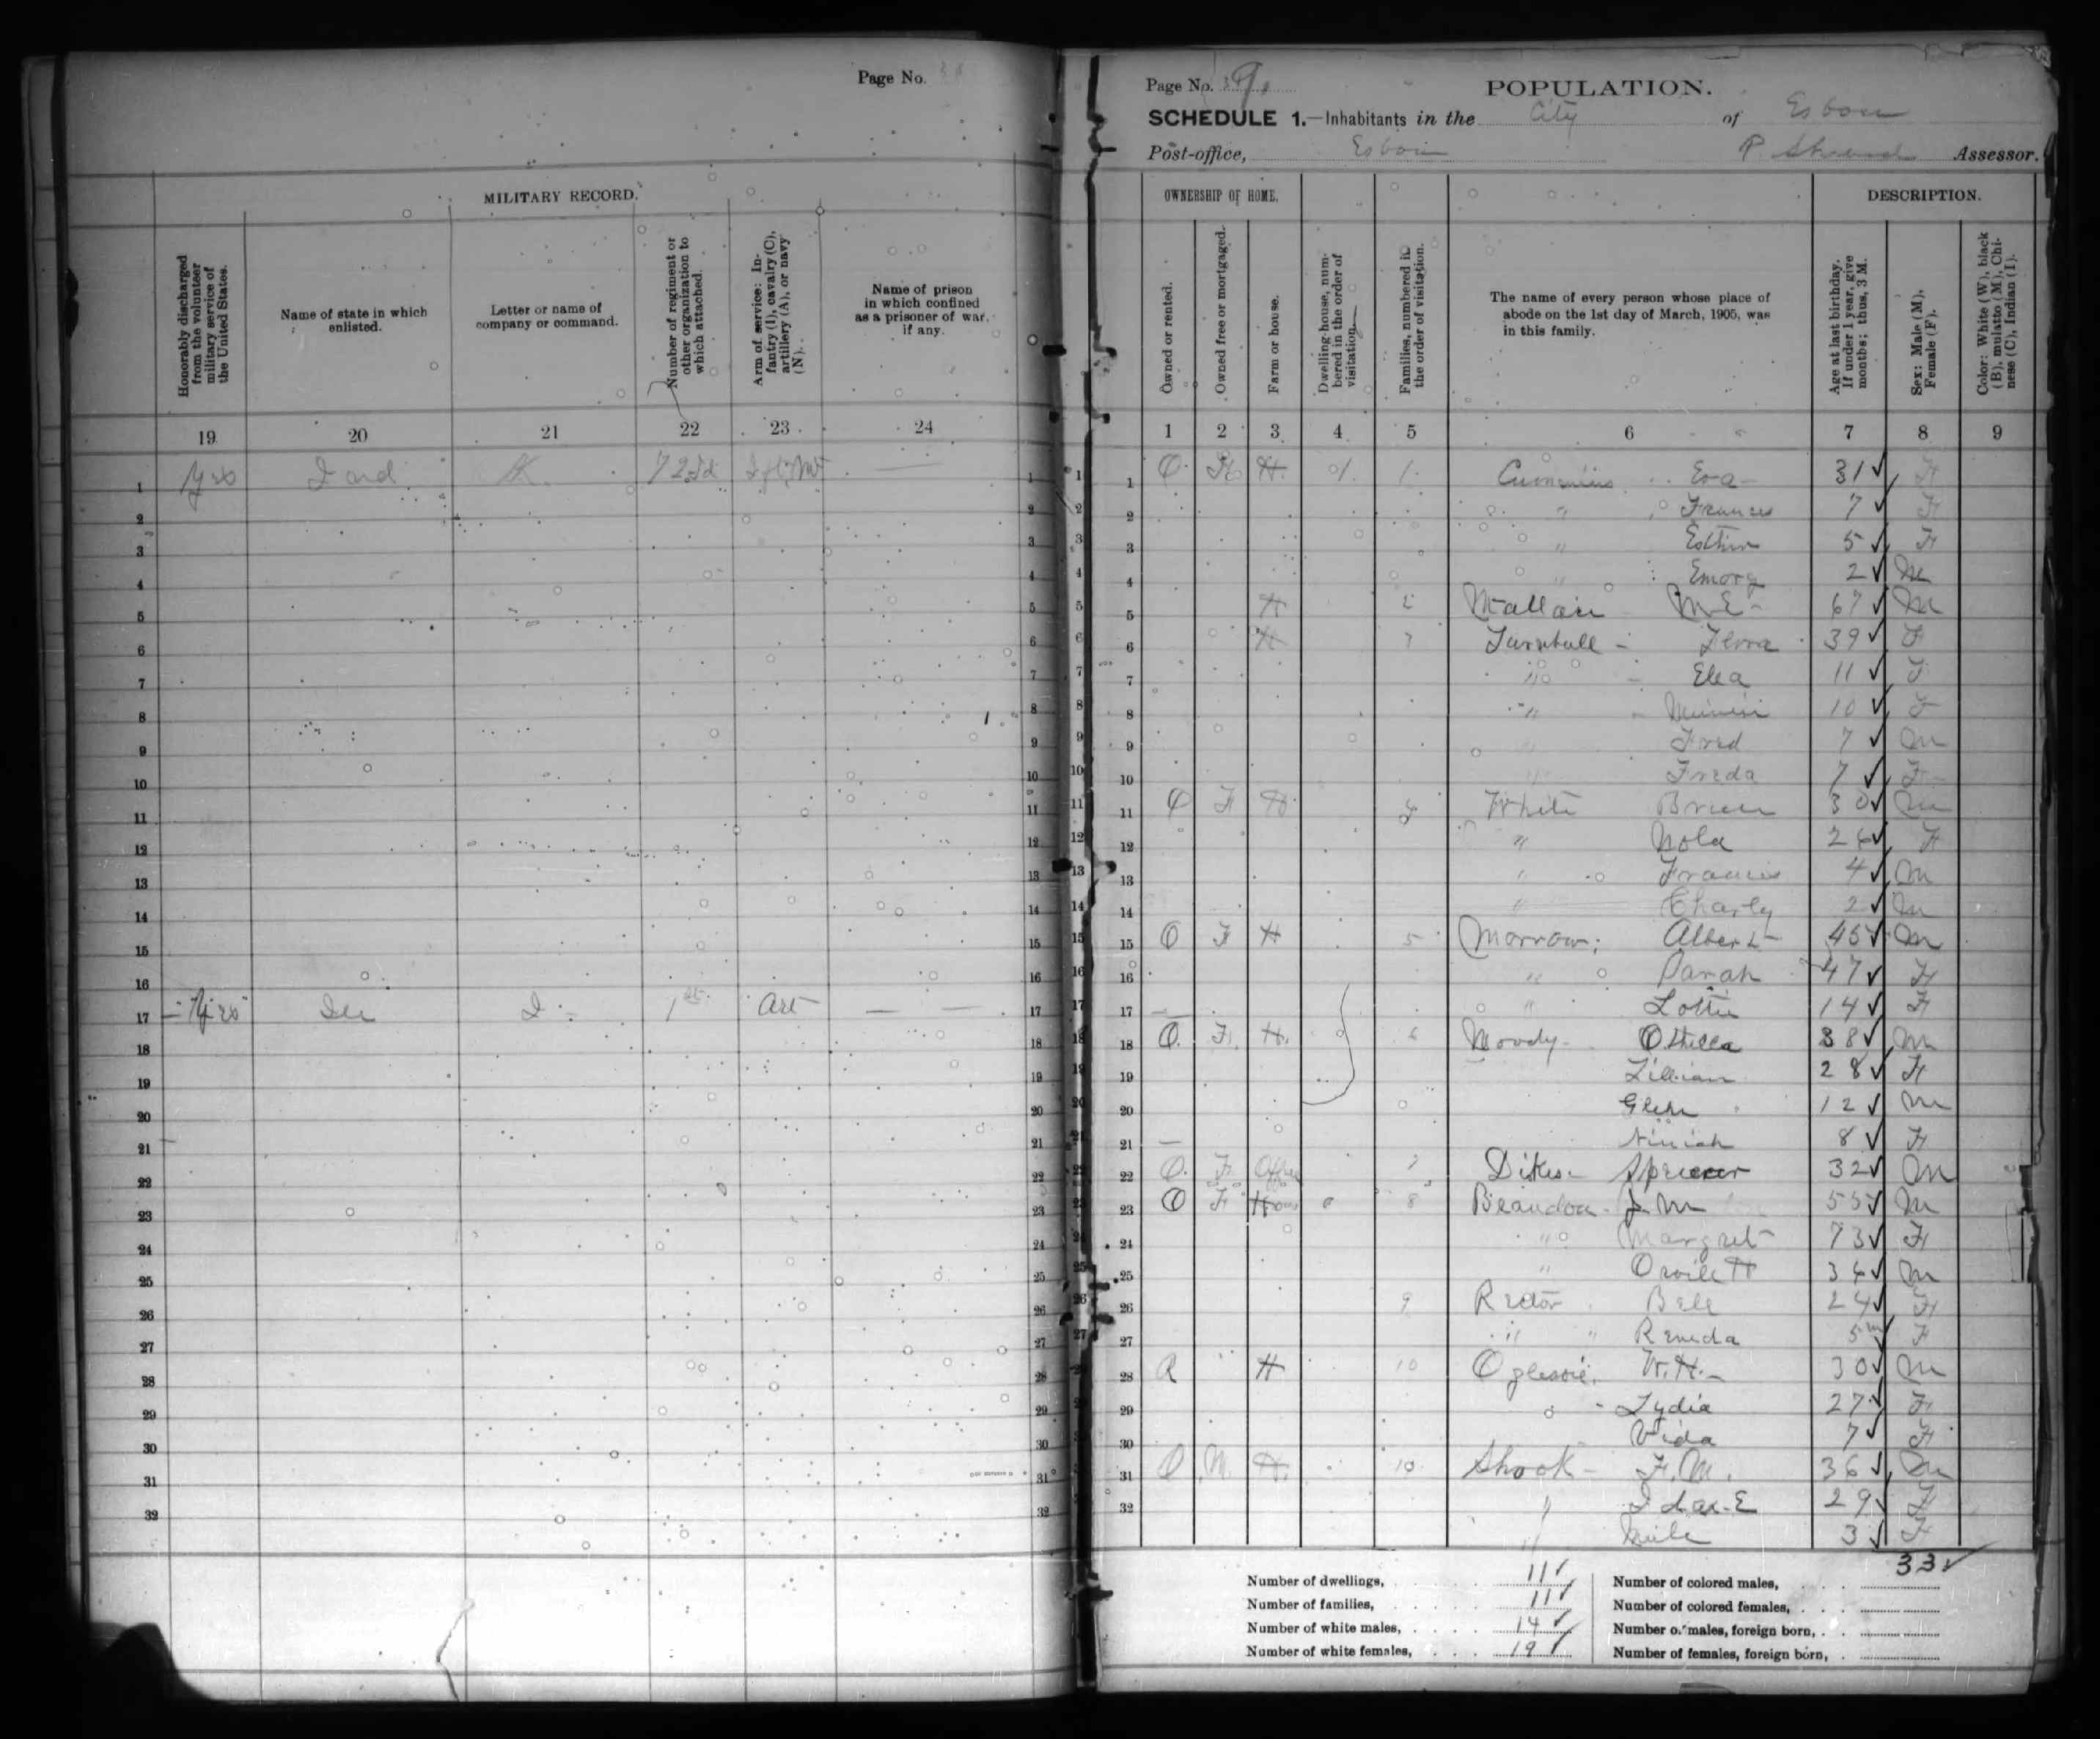 Page No.
MILITARY RECORD.
Honorably discharged from the volunteer military service of the United States.
Name of state in which enlisted.
Letter or name of company or command.
Number of regiment or other organization to which attached.
Arm of service: Infantry (I), cavalry (C), artillery (A), or navy (N).
Name of prison in which confined as a prisoner of war, if any.
19 20 21 22 23 24
1 Yes Ind K 72nd 1
2 2
3 3
4 4
5 5
6 6
7 7
8 8
9 9
10 10
11 11
12 12
13 13
14 14
15 15
16 16
17 Yes Ill I 1st Art — — 17
18 18
19 19
20 20
21 21
22 22
23 23
24 24
25 25
26 26
27 27
28 28
29 29
30 30
31 31
32 32
Page No. 39
POPULATION.
SCHEDULE 1.—Inhabitants in the City of Esbon
Post-office, Esbon Assessor.
OWNERSHIP OF HOME.
DESCRIPTION.
Owned or rented.
Owned free or mortgaged.
Farm or house.
Dwelling-house, numbered in the order of visitation.
Families, numbered in the order of visitation.
The name of every person whose place of abode on the 1st day of March, 1905, was in this family.
Age at last birthday. If under 1 year, give months; thus, 3 M.
Sex: Male (M), Female (F).
Color: White (W), black (B), mulatto (M), Chinese (C), Indian (I).
1 2 3 4 5 6 7 8 9
1 O H 1 Cummins Eva 31 F
2 " Frances 7 F
3 " Esther 5 F
4 " Emory 2 M
5 H 2 M E 67 M
6 H Turnbull 39 F
7 " 11 F
8 " 10 F
9 " Fred 7 M
10 " Freda 7 F
11 O F H White 30 M
12 " Nola 26 F
13 " Francis 4 M
14 " Charly 2 M
15 O F H 5 Morrow Albert 45 M
16 " Sarah 47 F
17 " Lottie 14 F
18 O F H 6 Moody 38 M
19 Lillian 28 F
20 Glenn 12 M
21 8 F
22 O F 7 Dikes Spencer 32 M
23 O F 8 J M 55 M
24 " Margret 73 F
25 " H 34 M
26 9 Rector 24 F
27 " " Reneda 5m F
28 R H 10 W. H. 30 M
29 Lydia 27 F
30 Vida 7 F
31 O M H 10 Shook F. M. 36 M
32 " E 29 F
3 F
33
Number of dwellings, 11
Number of families, 11
Number of white males, 14
Number of white females, 19
Number of colored males,
Number of colored females,
Number of males, foreign born,
Number of females, foreign born,